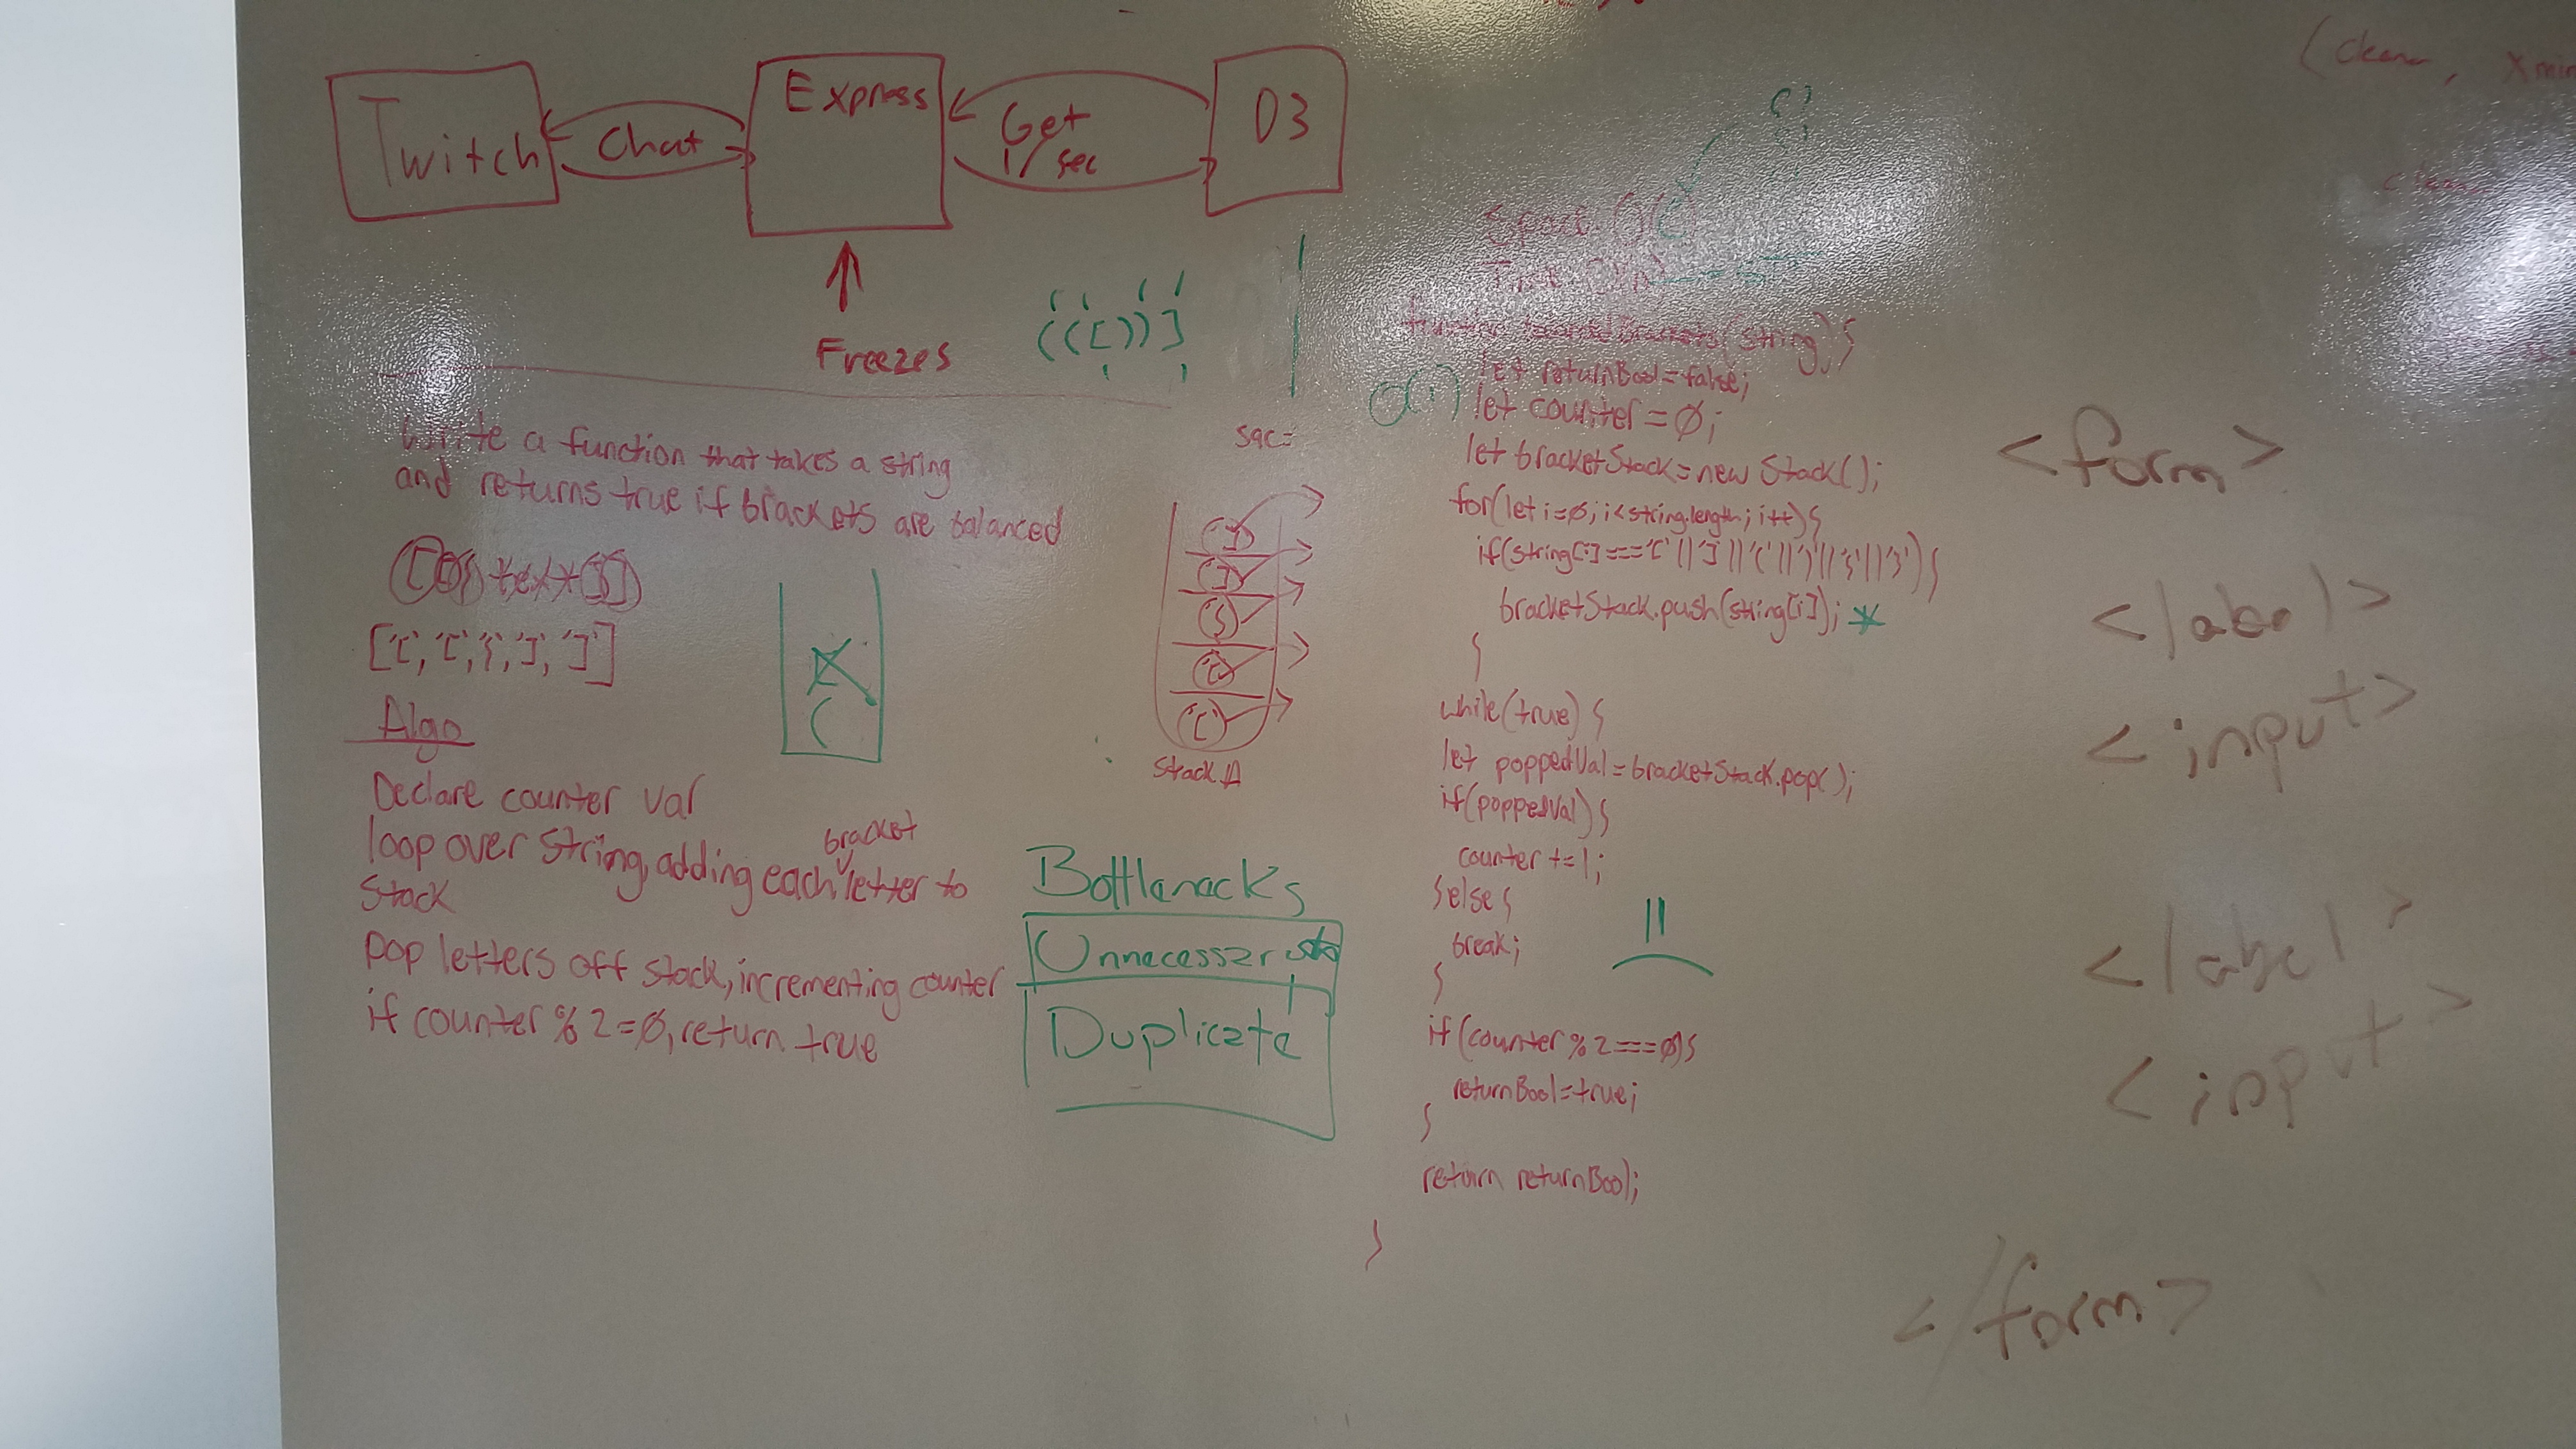 Twitch
Chat
Express
Get
1/sec
D3
Freezes
(([))]
Write a function that takes a string
and returns true if brackets are balanced
['[', '[', '}', ']', ']']
Algo
Declare counter val
loop over string, adding each bracket letter to
stack
pop letters off stack, incrementing counter
if counter % 2 = 0, return true
(
Stack A
Bottlenecks
Duplicate
O(1)
(string) {
let returnBool = false;
let counter = 0;
let bracketStack = new Stack();
for(let i=0; i<string.length; i++){
if(string[i] === '[' || ']' || '(' || ')' || '{' || '}') {
bracketStack.push(string[i]); *
}
while(true) {
let poppedVal = bracketStack.pop();
if(poppedVal) {
counter += 1;
} else {
break;
}
if(counter % 2 === 0) {
returnBool = true;
}
return returnBool;
}
<form>
<label>
<input>
<label>
<input>
</form>
(clean, xmin